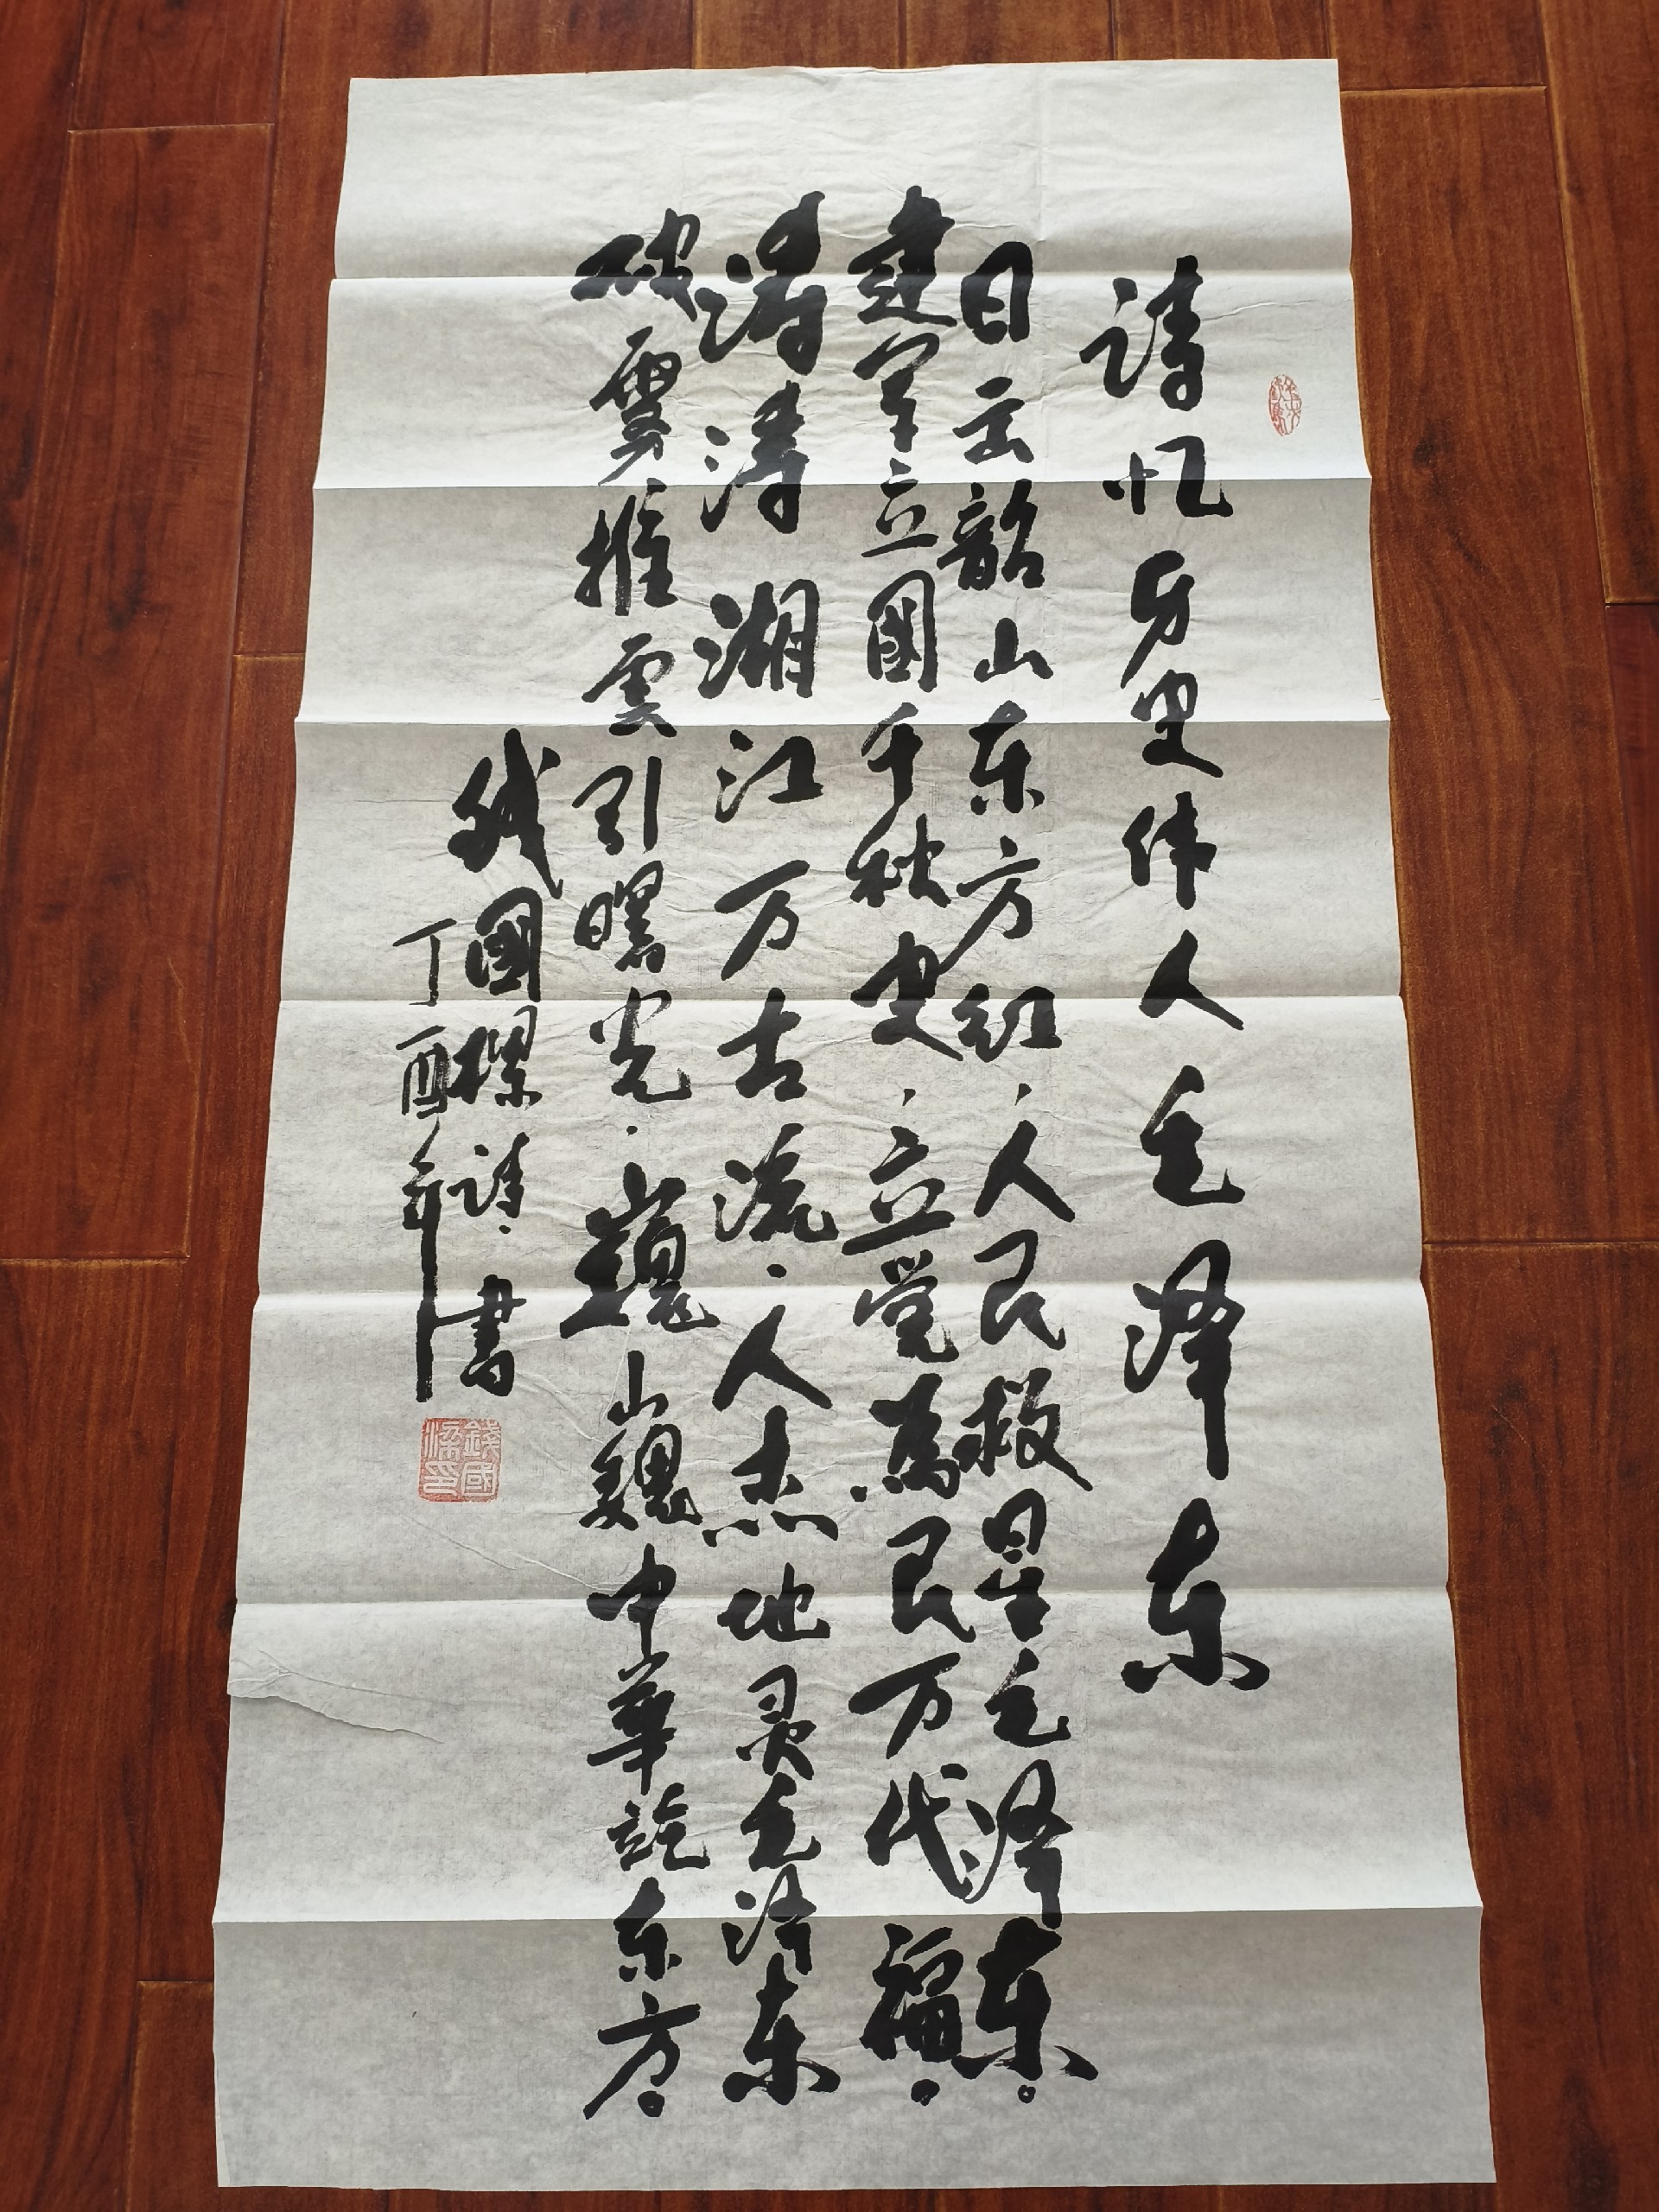 诗忆历史伟人毛泽东
日云韶山东方红，人民救星毛泽东。
建军立國千秋史，立党為民万代福。
涛涛湘江万古流，人杰地灵毛泽东
破雾推雲引曙光，巍巍中華屹东方。
钱國樑诗、書
丁酉年
錢國樑印